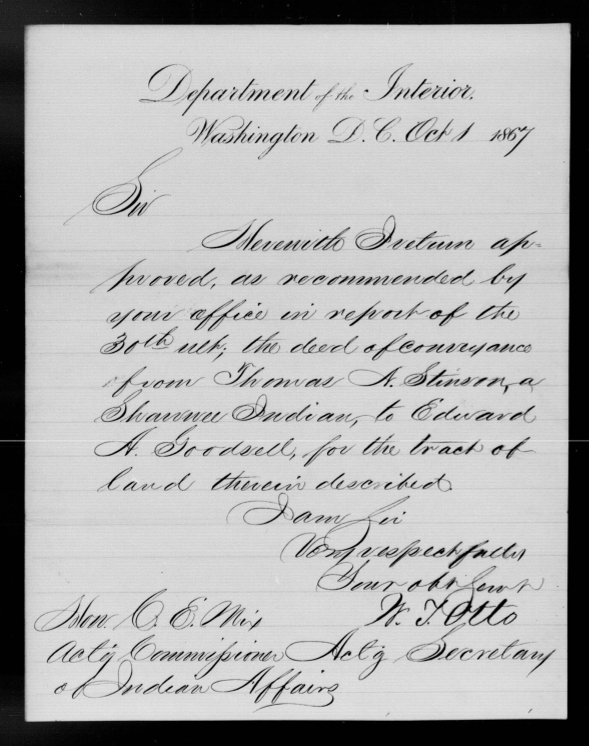 Department of the Interior.
Washington D. C. Oct 1 1867
Sir
Herewith I return ap=
proved, as recommended by
your office in report of the
30th ult; the deed of conveyance
from Thomas N. Stinson, a
Shawnee Indian, to Edward
A. Goodsell, for the tract of
land therein described.
I am Sir
Very respectfully
Your obt Servt
W. T. Otto
Hon. C. E. Mix
Actg Commissioner Actg Secretary
of Indian Affairs